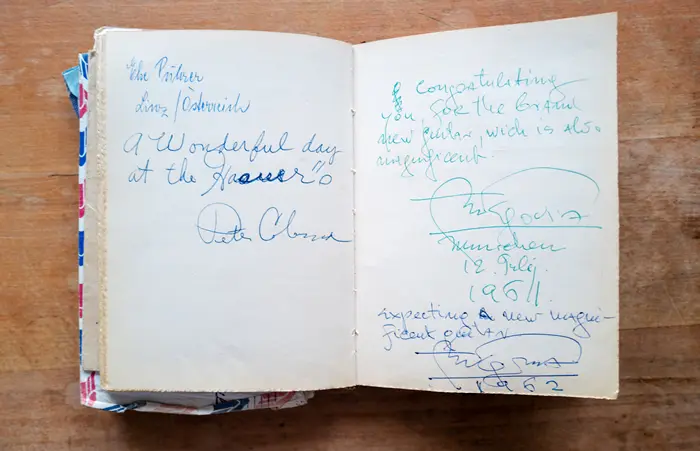 Linz/Österreich
A Wonderful day
at the Hauser's
Peter
I congratulating
you for the brand
new guitar, wich is also
magnificent.
Munichen
12. July.
1961.
expecting a new magni-
ficent guitar
1962